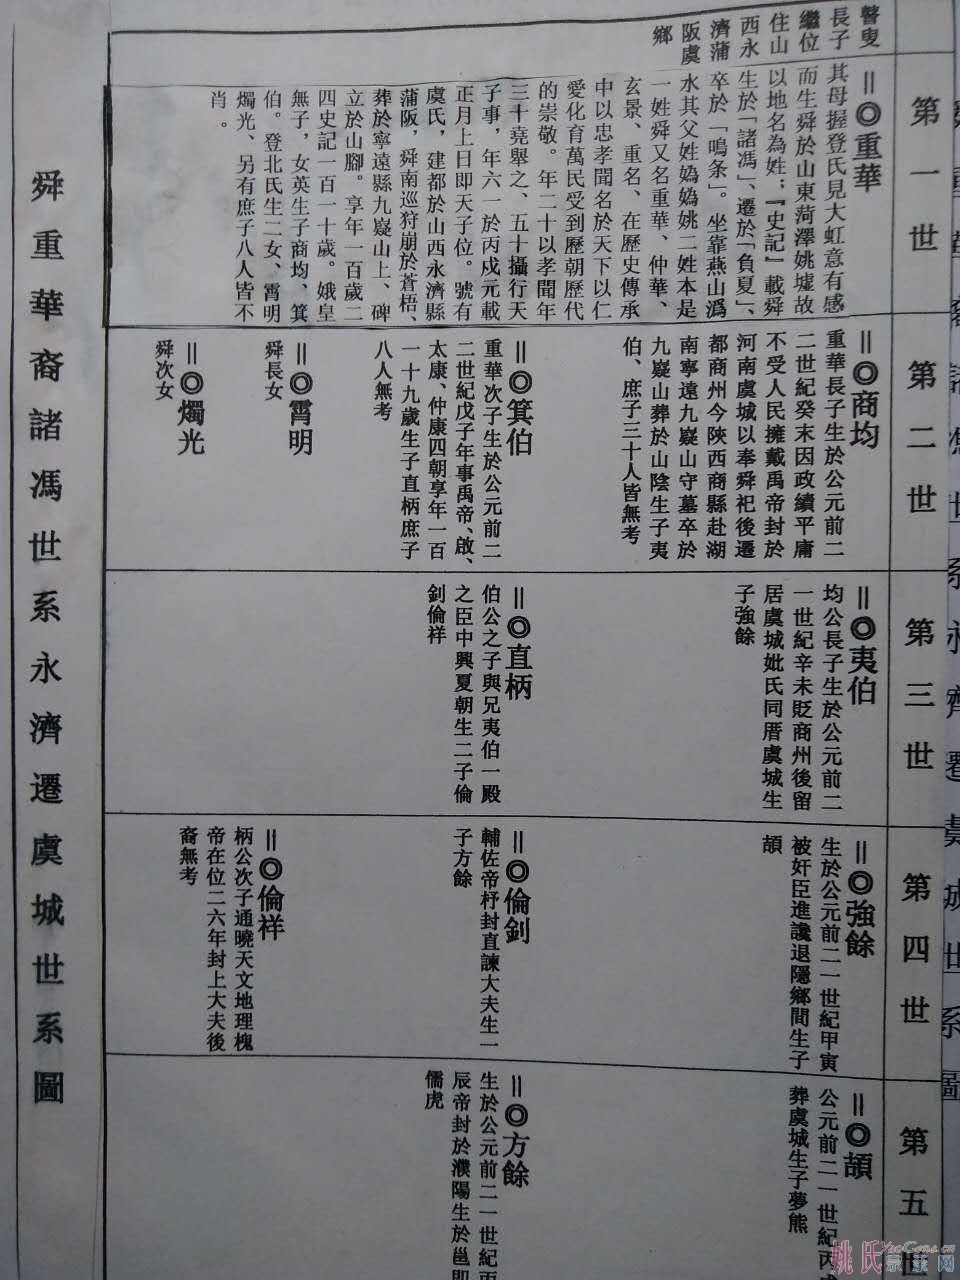 舜重華裔諸馮世系永濟遷虞城世系圖
第一世
瞽叟
長子
繼位
住山
西永
濟蒲
阪虞
鄉
=◎重華
其母握登氏見大虹意有感
而生舜於山東菏澤姚墟故
以地名為姓；『史記』載舜
生於「諸馮」、遷於「負夏」、
卒於「鳴条」。坐靠燕山溈
水其父姓媯媯姚二姓本是
一姓舜又名重華、仲華、
玄景、重名、在歷史傳承
中以忠孝聞名於天下以仁
愛化育萬民受到歷朝歷代
的崇敬。年二十以孝聞年
三十堯舉之、五十攝行天
子事，年六一於丙戍元載
正月上日即天子位。號有
虞氏，建都於山西永濟縣
蒲阪，舜南巡狩崩於蒼梧、
葬於寧遠縣九嶷山上、碑
立於山腳。享年一百歲二
四史記一百一十歲。娥皇
無子，女英生子商均、箕
伯。登北氏生二女、霄明
燭光、另有庶子八人皆不
肖。
第二世
=◎商均
重華長子生於公元前二
二世紀癸未因政績平庸
不受人民擁戴禹帝封於
河南虞城以奉舜祀後遷
都商州今陜西商縣赴湖
南寧遠九嶷山守墓卒於
九嶷山葬於山陰生子夷
伯、庶子三十人皆無考
=◎箕伯
重華次子生於公元前二
二世紀戊子年事禹帝、啟、
太康、仲康四朝享年一百
一十九歲生子直柄庶子
八人無考
=◎霄明
舜長女
=◎燭光
舜次女
第三世
=◎夷伯
均公長子生於公元前二
一世紀辛未貶商州後留
居虞城妣氏同厝虞城生
子強餘
=◎直柄
伯公之子與兄夷伯一殿
之臣中興夏朝生二子倫
釗倫祥
第四世
=◎強餘
生於公元前二一世紀甲寅
被奸臣進讒退隱鄉間生子
頡
=◎倫釗
輔佐帝杼封直諫大夫生一
子方餘
=◎倫祥
柄公次子通曉天文地理槐
帝在位二六年封上大夫後
裔無考
第五世
=◎頡
公元前二一世紀丙
葬虞城生子夢熊
=◎方餘
生於公元前二一世紀丙
辰帝封於濮陽生於邕即
儒虎
姚氏宗親网
YaoGens.cn